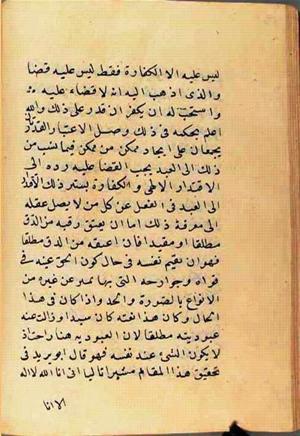 ليس عليه الا الكفارة فقط ليس عليه قضا
والذى اذهب اليه انه لا قضاء عليه
واستحب له ان يكفر ان قدر على ذلك والله
اعلم بحكمه فى ذلك وصل الاعتبار القدرتان
يجمعان على ايجاد ممكن من ممكن فيما ينسب من
ذلك الى العبد يجب القضا عليه رده الى
الاقتدار الالهى والكفارة يستر ذلك الاقتدار
الى العبد فى الفعل عن كل من لا يصل عقله
الى معرفة ذلك اما ان يعتق رقبه من الرق
مطلقا او مقيدا فان اعتقه من الرق مطلقا
فهو ان يقيم نفسه فى حال كون الحق عينه فى
قواه وجوارحه التى بها تميز عن غيره من
الانواع بالصورة والحد واذا كان فى هذا
الحال وكان هذا نعته كان سيدا وزالت عنه
عبوديته مطلقا لان العبوديه هنا راحت اذ
لا يكون الشئ عند نفسه فهو قال ابو يزيد فى
تحقيق هذا المقام مشيرا تاليا انى انا الله لا اله
الا انا